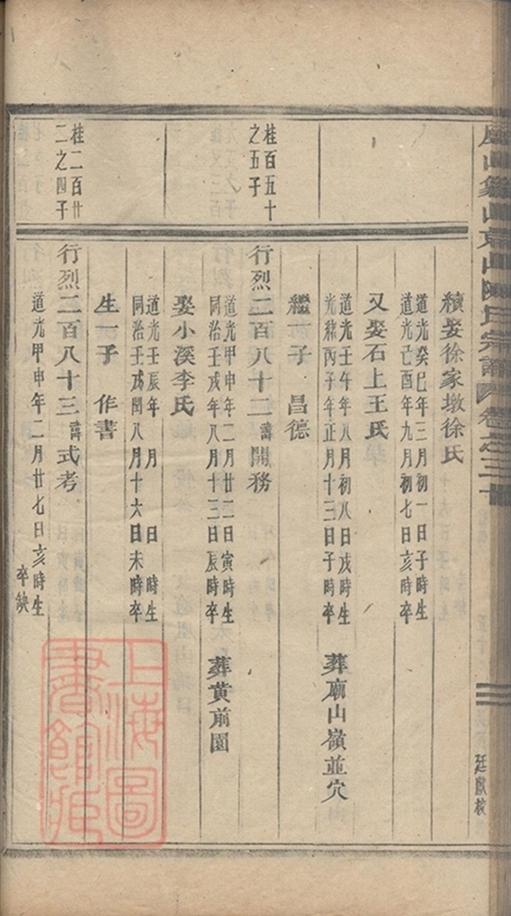 山陳氏宗譜卷之三十
續娶徐家墩徐氏
道光癸巳年三月初一日子時生
道光己酉年九月初七日亥時卒
又娶石上王氏
道光壬午年八月初八日戌時生
光緒丙子年正月十三日子時卒
葬廟山嶺並穴
繼一子 昌德
桂百五十
之五子
行烈二百八十二諱開務
道光甲申年二月廿二日寅時生
同治壬戌年八月十三日辰時卒
葬黃前園
娶小溪李氏
道光壬辰年 月 日 時生
同治壬戌閏八月十六日未時卒
生一子 作書
桂二百廿
二之四子
行烈二百八十三諱式考
道光甲申年二月廿七日亥時生
卒缺
上海圖
書館藏